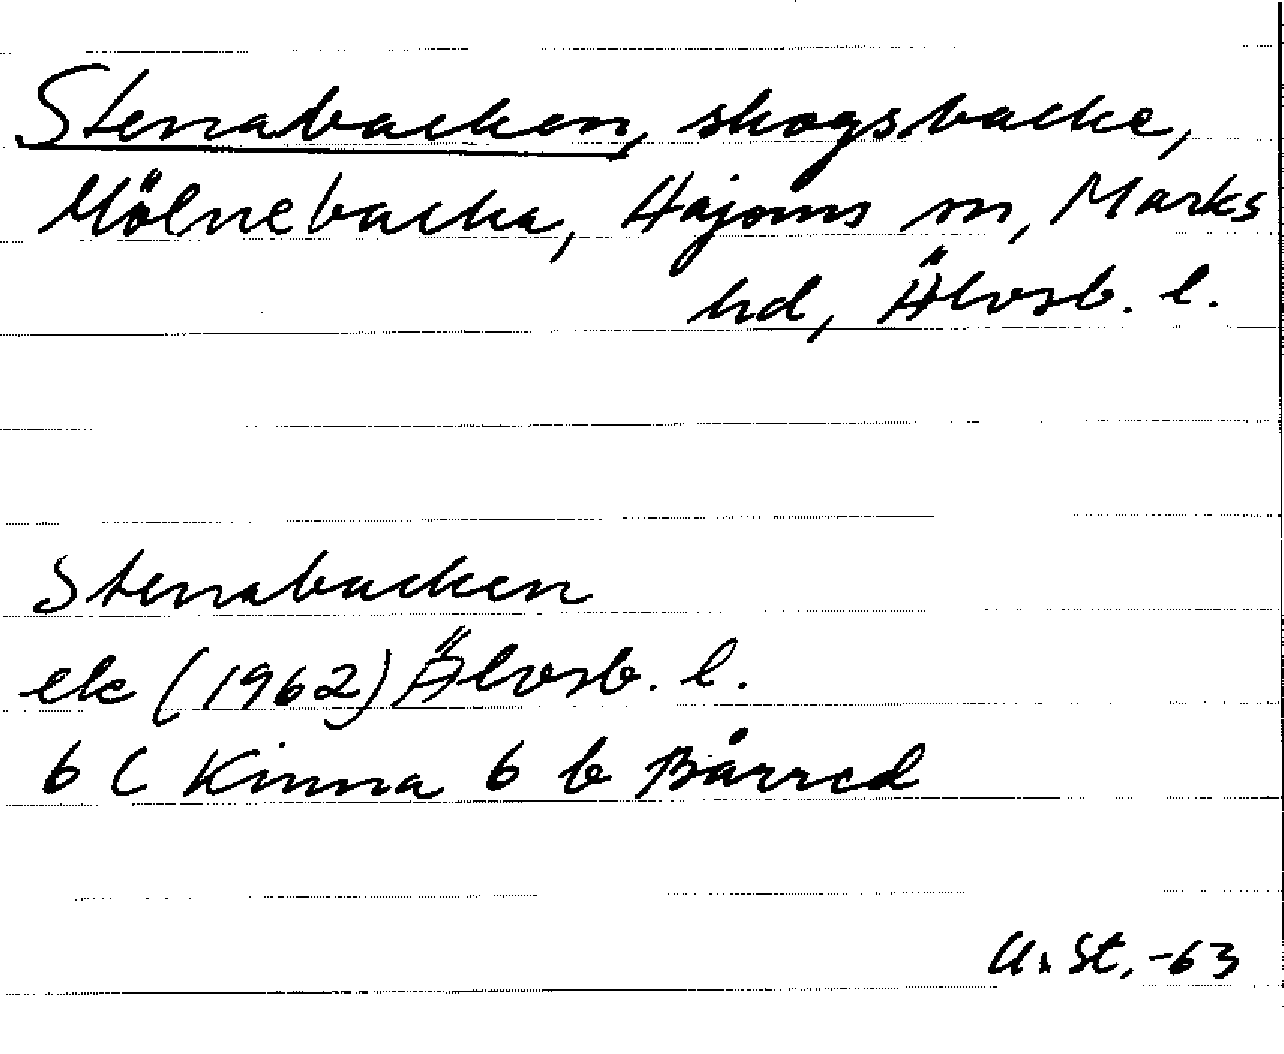 Stenabacken, skogsbacke,
Mölnebacka, Hajoms sn, Marks
hd, Älvsb. l.
Stenabacken
ek (1962) Älvsb. l.
6 C Kinna 6 b Bårred
U. St. -63